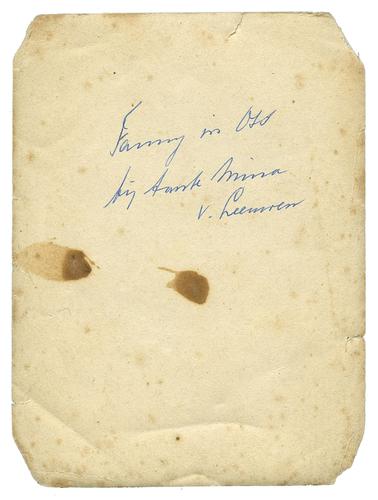 Fanny in Oss
bij tante Mina
v. Leeuwen